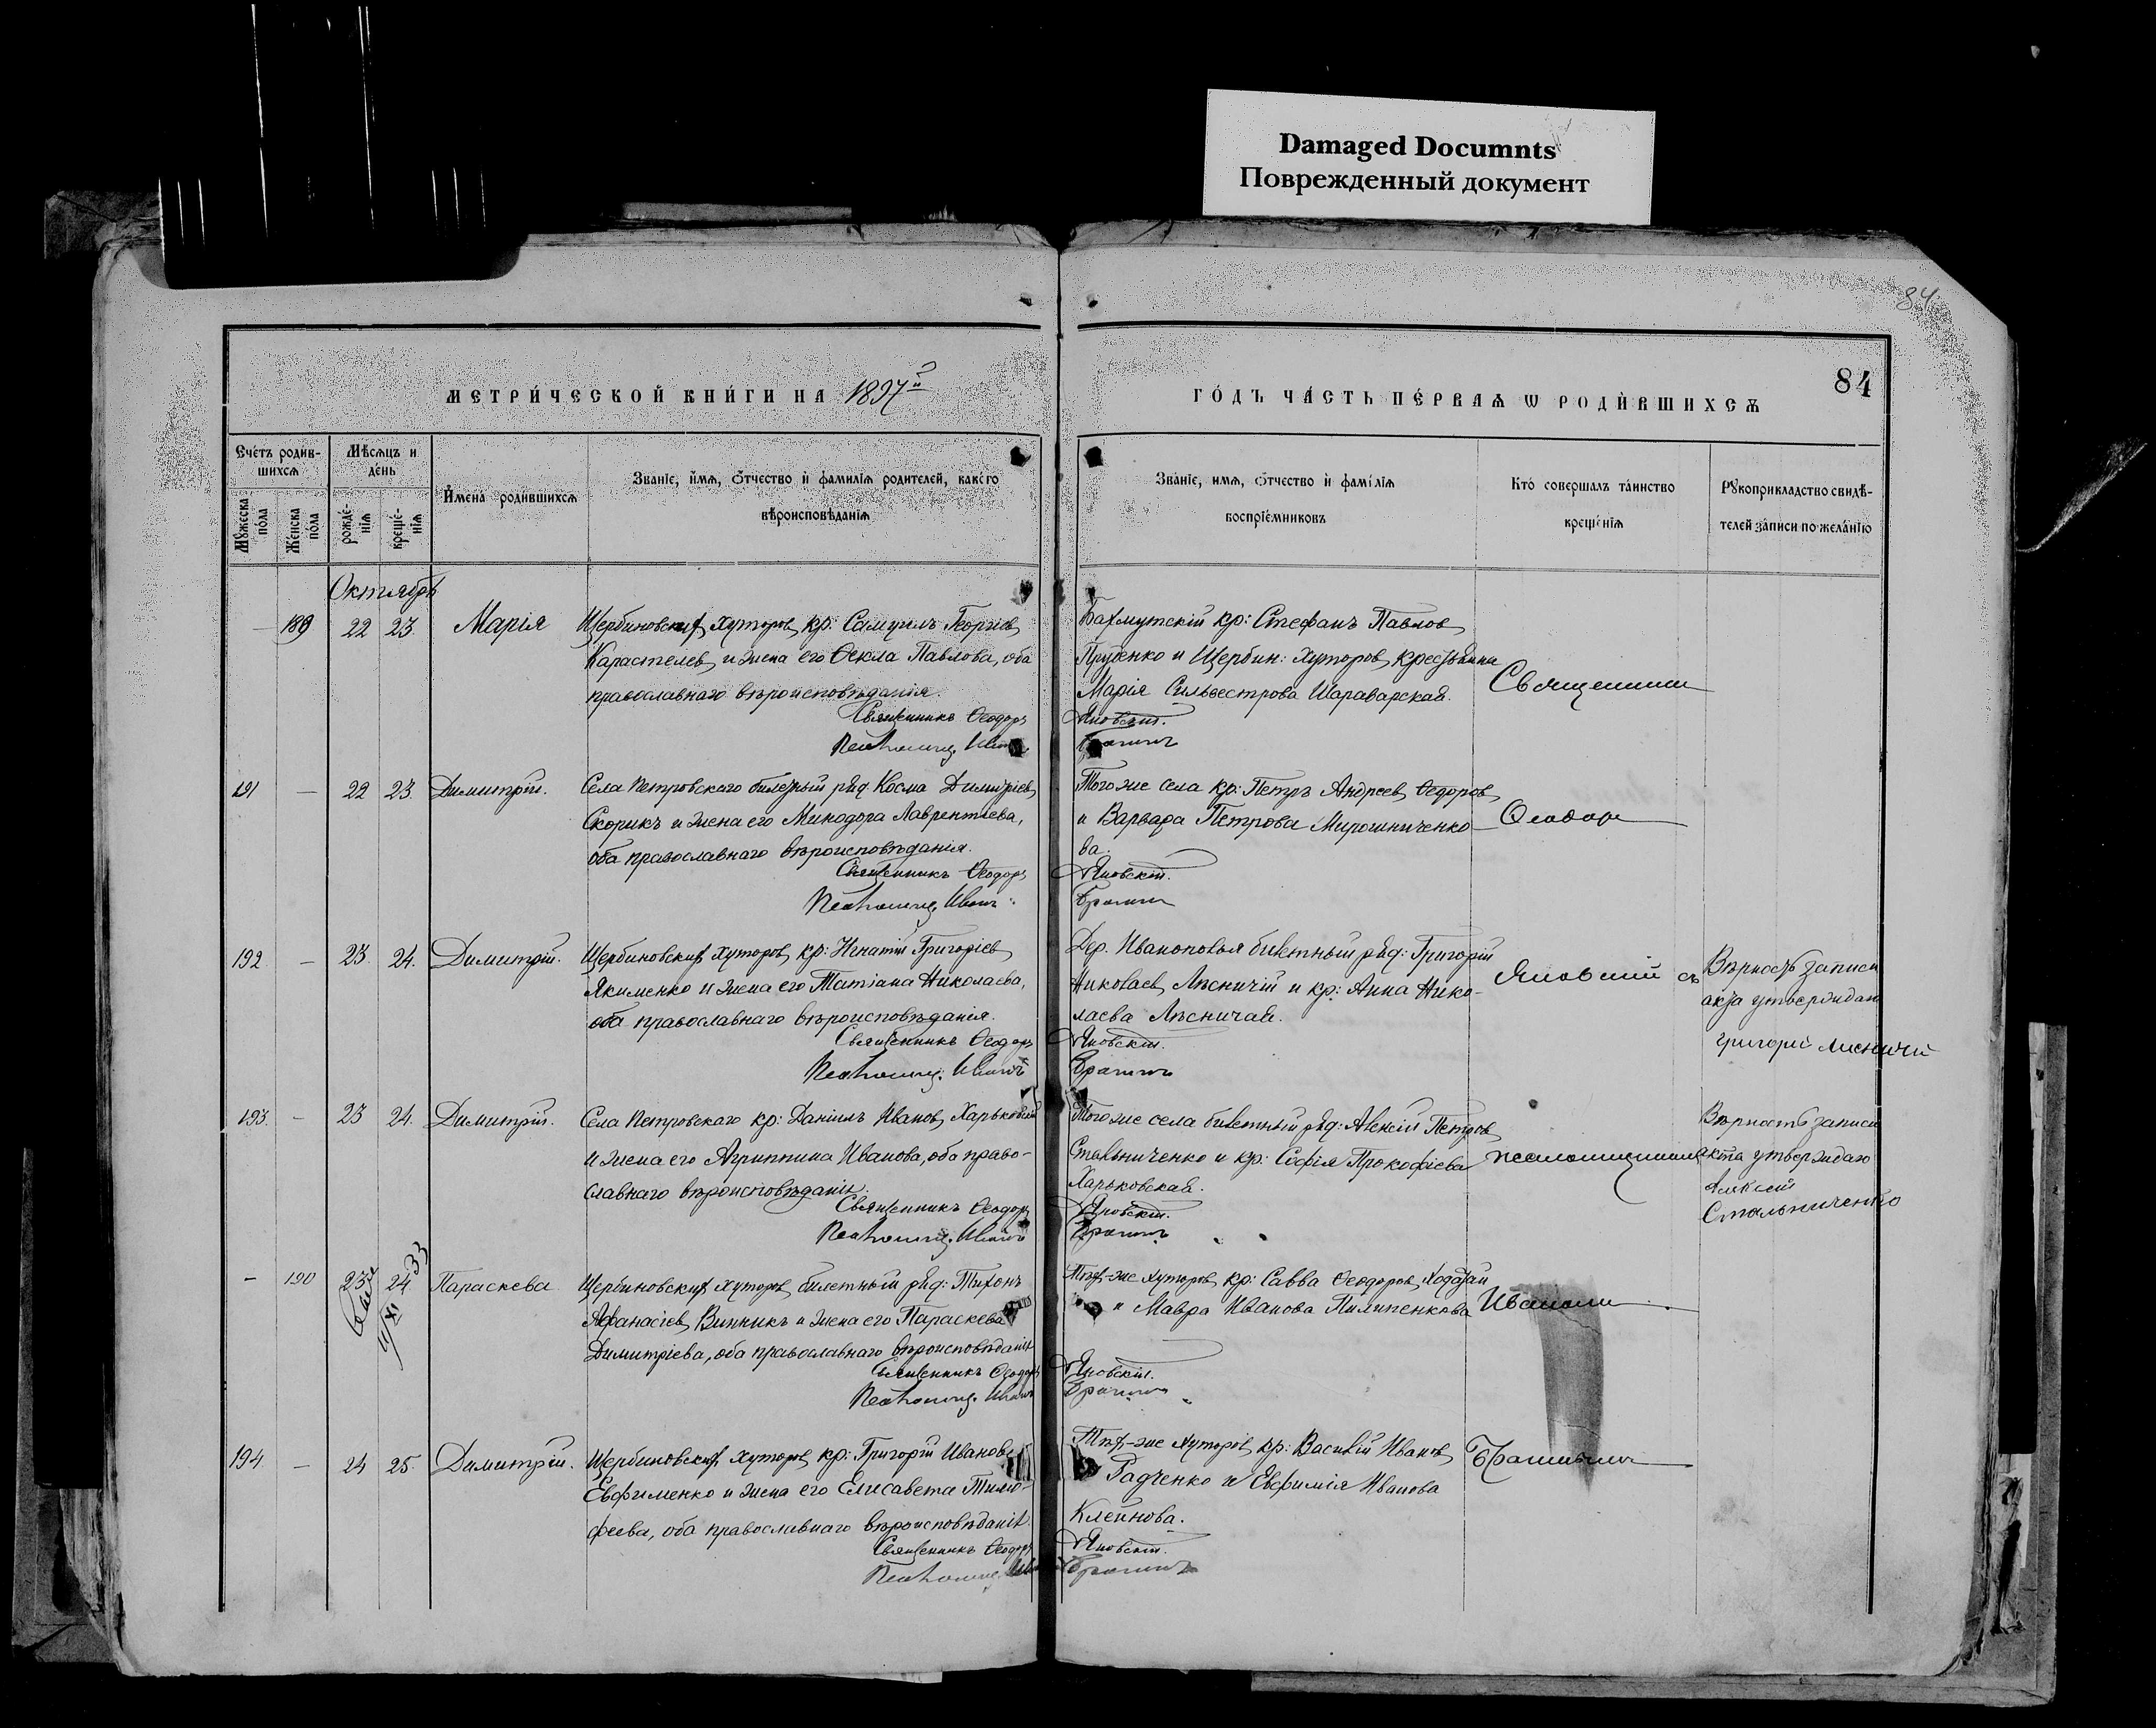 Damaged Documnts
Поврежденный документ
84
МЕТРИ́ЧЕСКОЙ КНИ́ГИ НА 1897й
ГО́ДЪ ЧА́СТЬ ПЕ́РВАѦ Ѡ РОДИ́ВШИХСѦ
84
Сче́тъ роди́в-
шихсѧ
Мѣ́сѧцъ и
де́нь
Мꙋ́жеска
по́ла
Же́нска
по́ла
рожде́-
нїѧ
креще́-
нїѧ
И҆мена̀ роди́вшихсѧ
Зва́нїе, и҆́мѧ, ѻ҆́тчество и҆ фамилїѧ родителей, како́го
вѣроисповѣ́данїѧ
Зва́нїе, имѧ, ѻ҆́тчество и҆ фамі́лїѧ
воспрїе́мниковъ
Кто̀ соверша́лъ та́инство
креще́нїѧ
Рꙋкоприкладство свидѣ́-
телей за́писи по жела́нїю
Октябрь
— 189 22 23 Марія
Щербиновскихъ Хуторовъ кр: Самуилъ Георгіевъ
Карастелевъ и жена его Ѳекла Павлова, оба
православнаго вѣроисповѣданія.
Священникъ Ѳеодоръ
Бахмутскій кр: Стефанъ Павловъ
и Щербин: Хуторовъ крестьянка
Марія Сильвестрова Шараварская.
Яновскій.
Священникъ
191 — 22 23 Димитрій.
Села Петровскаго билетный ряд. Косма Димитріевъ
Скорикъ и жена его Минодора Лаврентіева,
оба православнаго вѣроисповѣданія.
Священникъ Ѳеодоръ
Псаломщ. Иванъ
Того же села кр: Петръ Андреевъ Ѳедоровъ
и Варвара Петрова Мирошниченко-
ва.
Яновскій.
Ѳеодоръ
192 — 23 24. Димитрій.
Щербиновскихъ Хуторовъ кр: Игнатій Григоріевъ
Якименко и жена его Татіана Николаева,
оба православнаго вѣроисповѣданія.
Священникъ Ѳеодоръ
Псаломщ. Иванъ
Дер. Иванополья билетный ряд: Григорій
Николаевъ Лѣсничій и кр: Анна Нико-
лаева Лѣсничая.
Яновскій.
Яновскій съ
Вѣрность записи
акта утверждаю
Григорій Лисничій
193. — 23 24. Димитрій.
Села Петровскаго кр: Даніилъ Ивановъ Харьковскій
и жена его Агриппина Иванова, оба право-
славнаго вѣроисповѣданія.
Священникъ Ѳеодоръ
Псаломщ. Иванъ
Того же села билетный ряд: Алексій Петровъ
Стальниченко и кр: Софія Прокофіева
Харьковская.
Яновскій.
псаломщикомъ
Вѣрность записи
акта утверждаю
Алексій
Стальниченко
— 190 23 24. Параскева
Щербиновскихъ Хуторовъ билетный ряд: Тихонъ
Афанасіевъ Винникъ и жена его Параскева
Димитріева, оба православнаго вѣроисповѣданія
Священникъ Ѳеодоръ
Псаломщ. Иванъ
Тѣхъ-же хуторовъ кр: Савва Ѳеодоровъ
и Мавра Иванова Пилипенкова
Яновскій.
Иваномъ
194. — 24 25. Димитрій.
Щербиновскихъ Хуторовъ кр: Григорій Ивановъ
Евфименко и жена его Елисавета Тимо-
феева, оба православнаго вѣроисповѣданія
Священникъ Ѳеодоръ
Псаломщ. Иванъ
Тѣхъ-же хуторовъ кр: Василій Ивановъ
Радченко и Евфимія Иванова
Клейнова.
Яновскій.